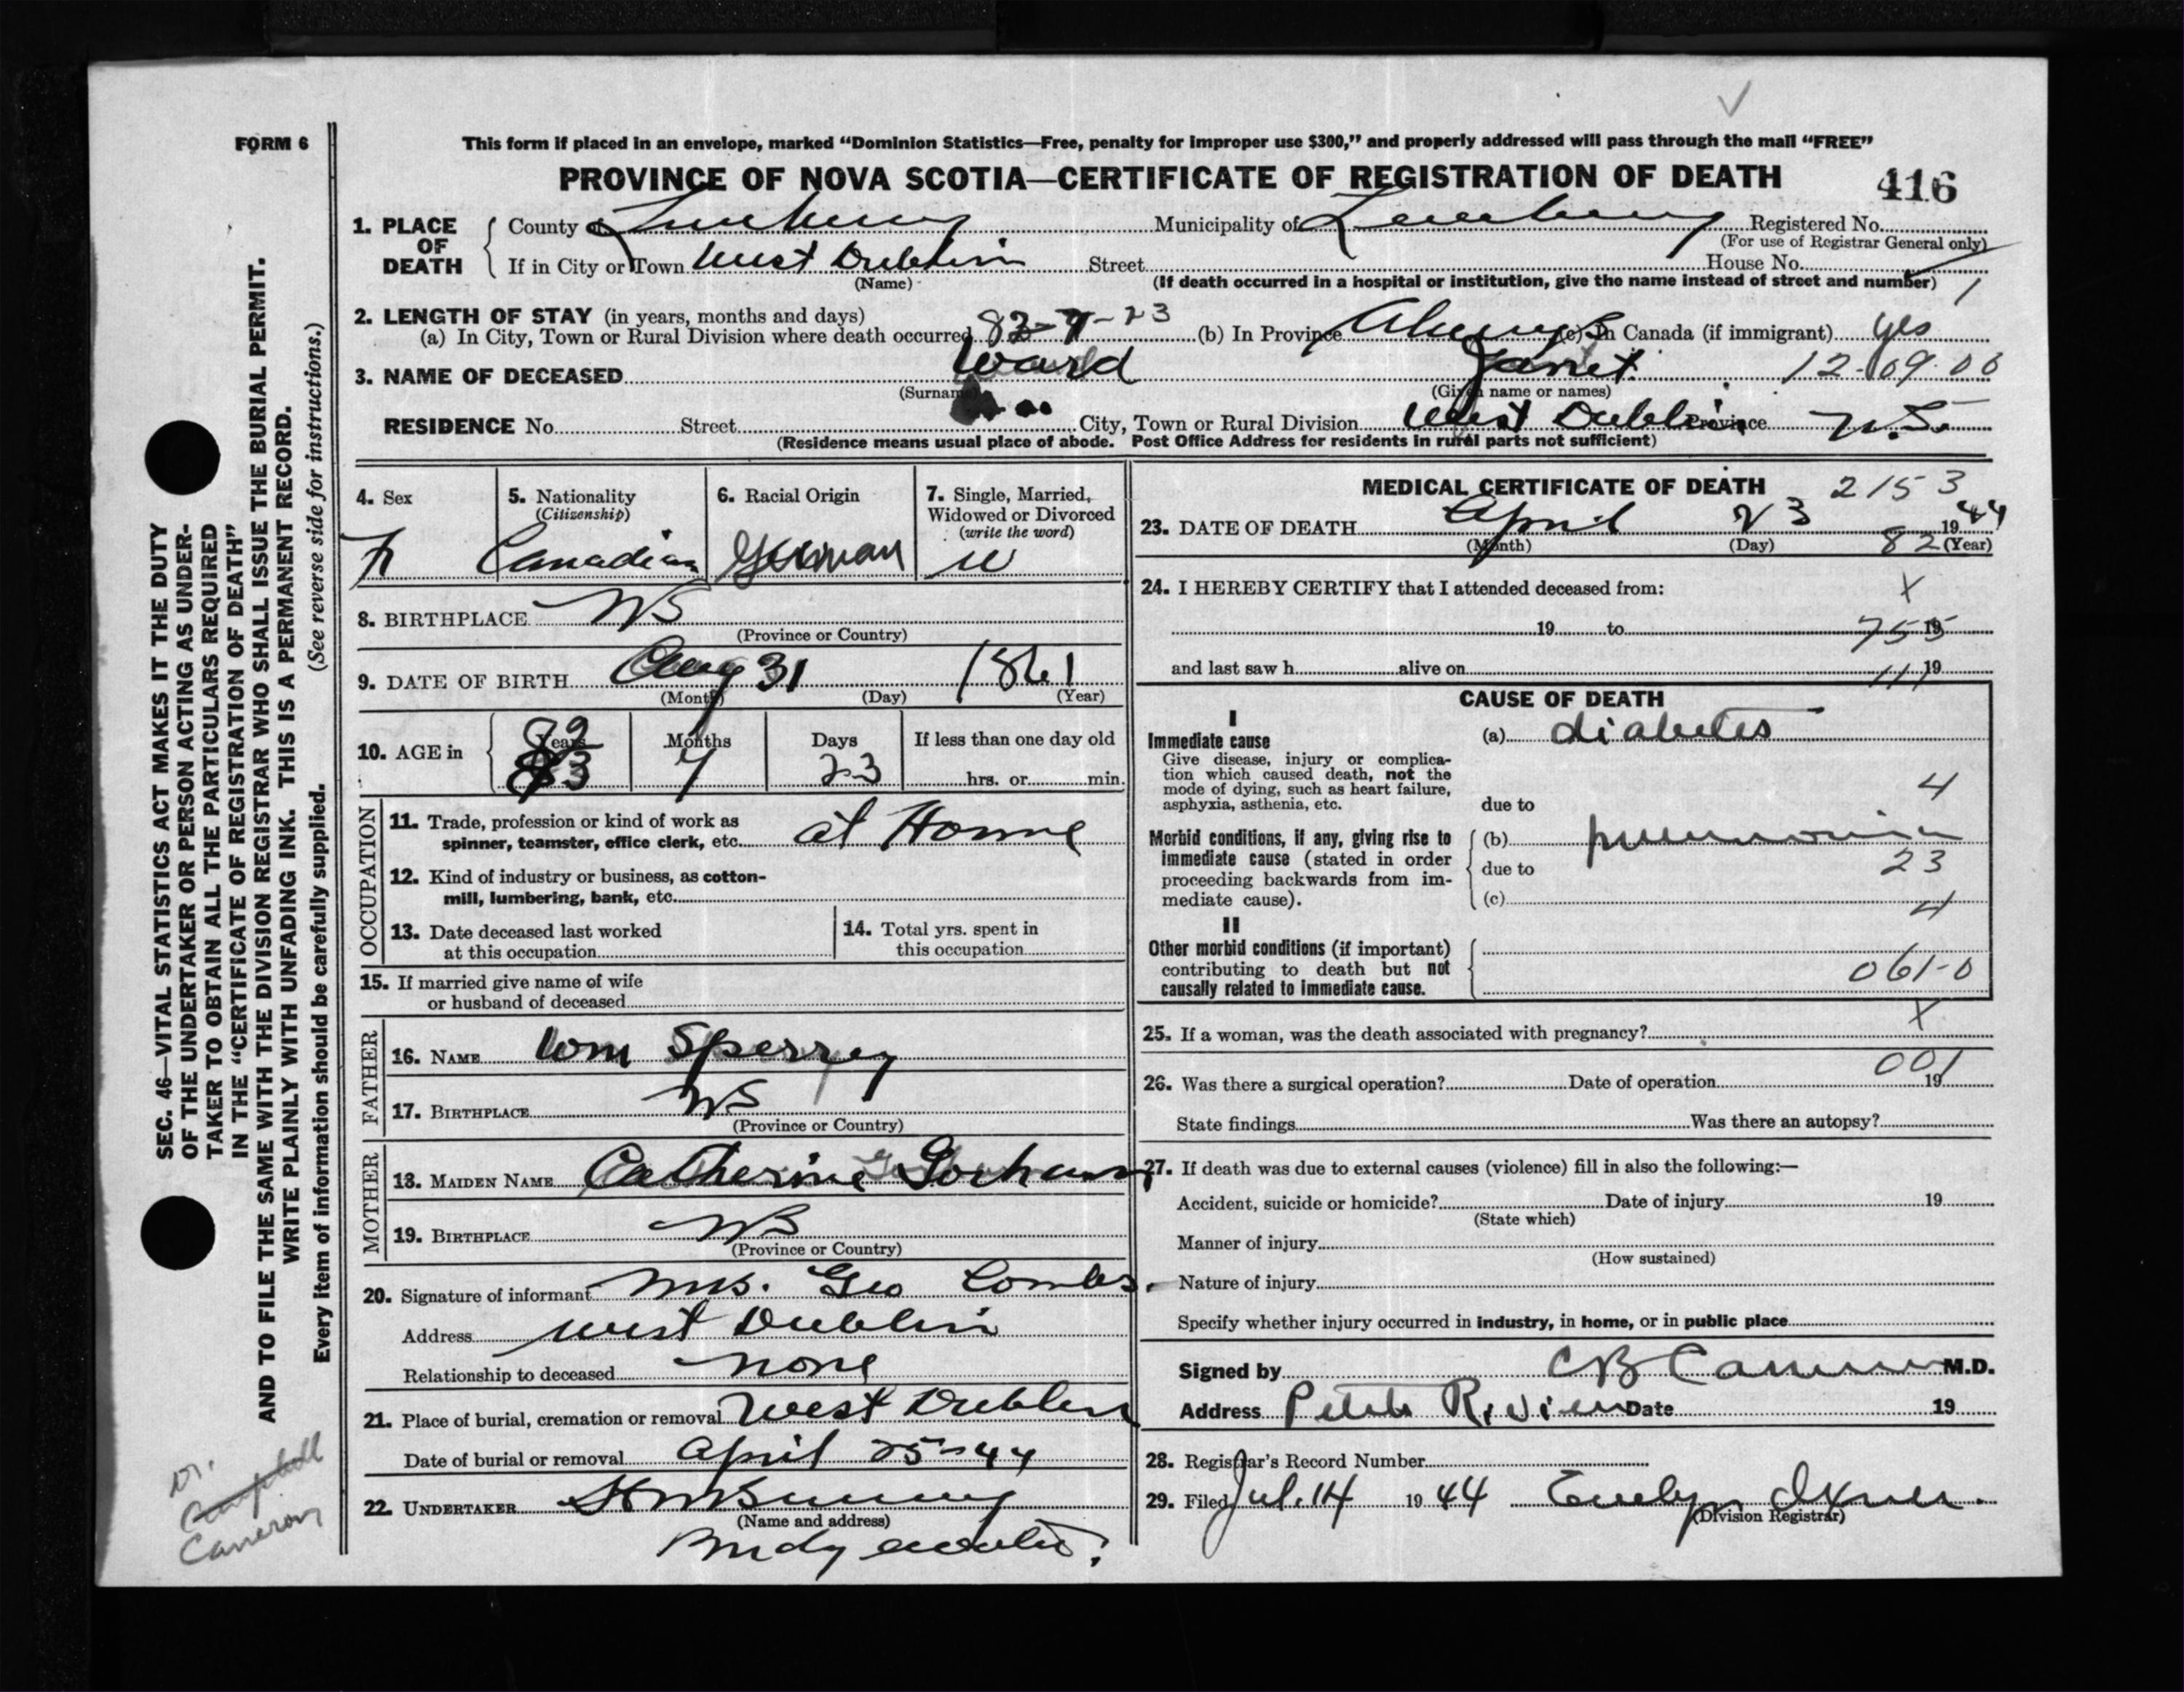 FORM 6
This form if placed in an envelope, marked “Dominion Statistics—Free, penalty for improper use $300,” and properly addressed will pass through the mail “FREE”
PROVINCE OF NOVA SCOTIA—CERTIFICATE OF REGISTRATION OF DEATH 416
1. PLACE OF DEATH County of Lunenburg Municipality of Lunenburg Registered No.
(For use of Registrar General only)
If in City or Town West Dublin Street House No.
(Name) (If death occurred in a hospital or institution, give the name instead of street and number) 1
2. LENGTH OF STAY (in years, months and days)
(a) In City, Town or Rural Division where death occurred 82-7-23 (b) In Province Always (c) In Canada (if immigrant) yes
3. NAME OF DECEASED Ward Janet 12-09-00
(Surname) (Given name or names)
RESIDENCE No. Street City, Town or Rural Division West Dublin Province N.S.
(Residence means usual place of abode. Post Office Address for residents in rural parts not sufficient)
4. Sex 5. Nationality (Citizenship) 6. Racial Origin 7. Single, Married, Widowed or Divorced (write the word)
F Canadian German W
8. BIRTHPLACE NS
(Province or Country)
9. DATE OF BIRTH Aug 31 1861
(Month) (Day) (Year)
10. AGE in Years Months Days If less than one day old
82 83 7 23 hrs. or min.
OCCUPATION
11. Trade, profession or kind of work as spinner, teamster, office clerk, etc. at Home
12. Kind of industry or business, as cotton-mill, lumbering, bank, etc.
13. Date deceased last worked at this occupation
14. Total yrs. spent in this occupation
15. If married give name of wife or husband of deceased
FATHER
16. NAME Wm Sperrey
17. BIRTHPLACE NS
(Province or Country)
MOTHER
18. MAIDEN NAME Catherine
19. BIRTHPLACE NS
(Province or Country)
20. Signature of informant Mrs. Geo Combs.
Address West Dublin
Relationship to deceased none
21. Place of burial, cremation or removal West Dublin
Date of burial or removal April 25-44
22. UNDERTAKER
(Name and address)
MEDICAL CERTIFICATE OF DEATH 2153
23. DATE OF DEATH April 23 1944
(Month) (Day) 82 (Year)
24. I HEREBY CERTIFY that I attended deceased from: X
19 to 19 755
and last saw h alive on 19 11
CAUSE OF DEATH
I
Immediate cause (a) diabetes
Give disease, injury or complication which caused death, not the mode of dying, such as heart failure, asphyxia, asthenia, etc.
due to 4
Morbid conditions, if any, giving rise to immediate cause (stated in order proceeding backwards from immediate cause).
(b) pneumonia
due to 23
(c) 4
II
Other morbid conditions (if important) contributing to death but not causally related to immediate cause.
061-0
X
25. If a woman, was the death associated with pregnancy?
001
26. Was there a surgical operation? Date of operation 19
State findings Was there an autopsy?
27. If death was due to external causes (violence) fill in also the following:—
Accident, suicide or homicide? Date of injury 19
(State which)
Manner of injury
(How sustained)
Nature of injury
Specify whether injury occurred in industry, in home, or in public place
Signed by CB Cameron M.D.
Address Petite Riviere Date 19
28. Registrar's Record Number
29. Filed Jul. 14 1944 Evelyn
(Division Registrar)
SEC. 46—VITAL STATISTICS ACT MAKES IT THE DUTY
OF THE UNDERTAKER OR PERSON ACTING AS UNDER-
TAKER TO OBTAIN ALL THE PARTICULARS REQUIRED
IN THE “CERTIFICATE OF REGISTRATION OF DEATH”
AND TO FILE THE SAME WITH THE DIVISION REGISTRAR WHO SHALL ISSUE THE BURIAL PERMIT.
WRITE PLAINLY WITH UNFADING INK. THIS IS A PERMANENT RECORD.
Every item of information should be carefully supplied. (See reverse side for instructions.)
Dr.
Campbell
Cameron